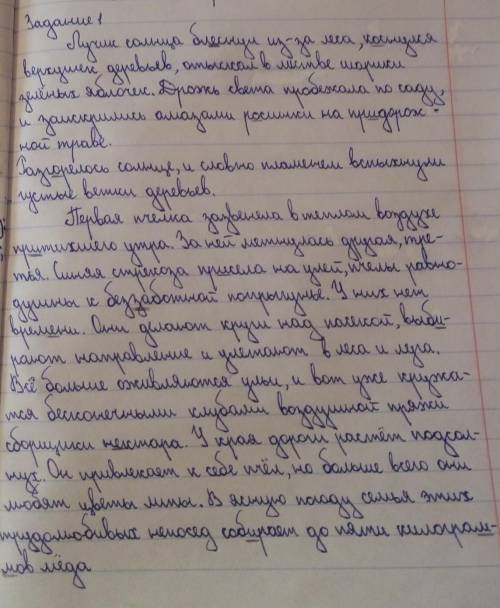 Задание 1
Лучик солнца блеснул из-за леса, коснулся
верхушек деревьев, отыскал в листве шарики
зелёных яблочек. Дрожь света пробежала по саду,
и заискрились алмазами росинки на придорож-
ной траве.
Разгорелось солнце, и словно пламенем вспыхнули
густые ветки деревьев.
Первая пчёлка зазвенела в теплом воздухе
притихшего утра. За ней метнулась другая, тре-
тья. Синяя стрекоза присела на улей, пчелы равно-
душны к беззаботной попрыгунье. У них нет
времени. Они делают круги над пасекой, выби-
рают направление и улетают в леса и луга.
Всё больше оживляются ульи, и вот уже кружа-
тся бесконечными клубами воздушной пряжи
сборщики нектара. У края дороги растёт подсол-
нух. Он привлекает к себе пчёл, но больше всего они
любят цветы липы. В ясную погоду семья этих
трудолюбивых непосед собирает до пяти килограм-
мов мёда